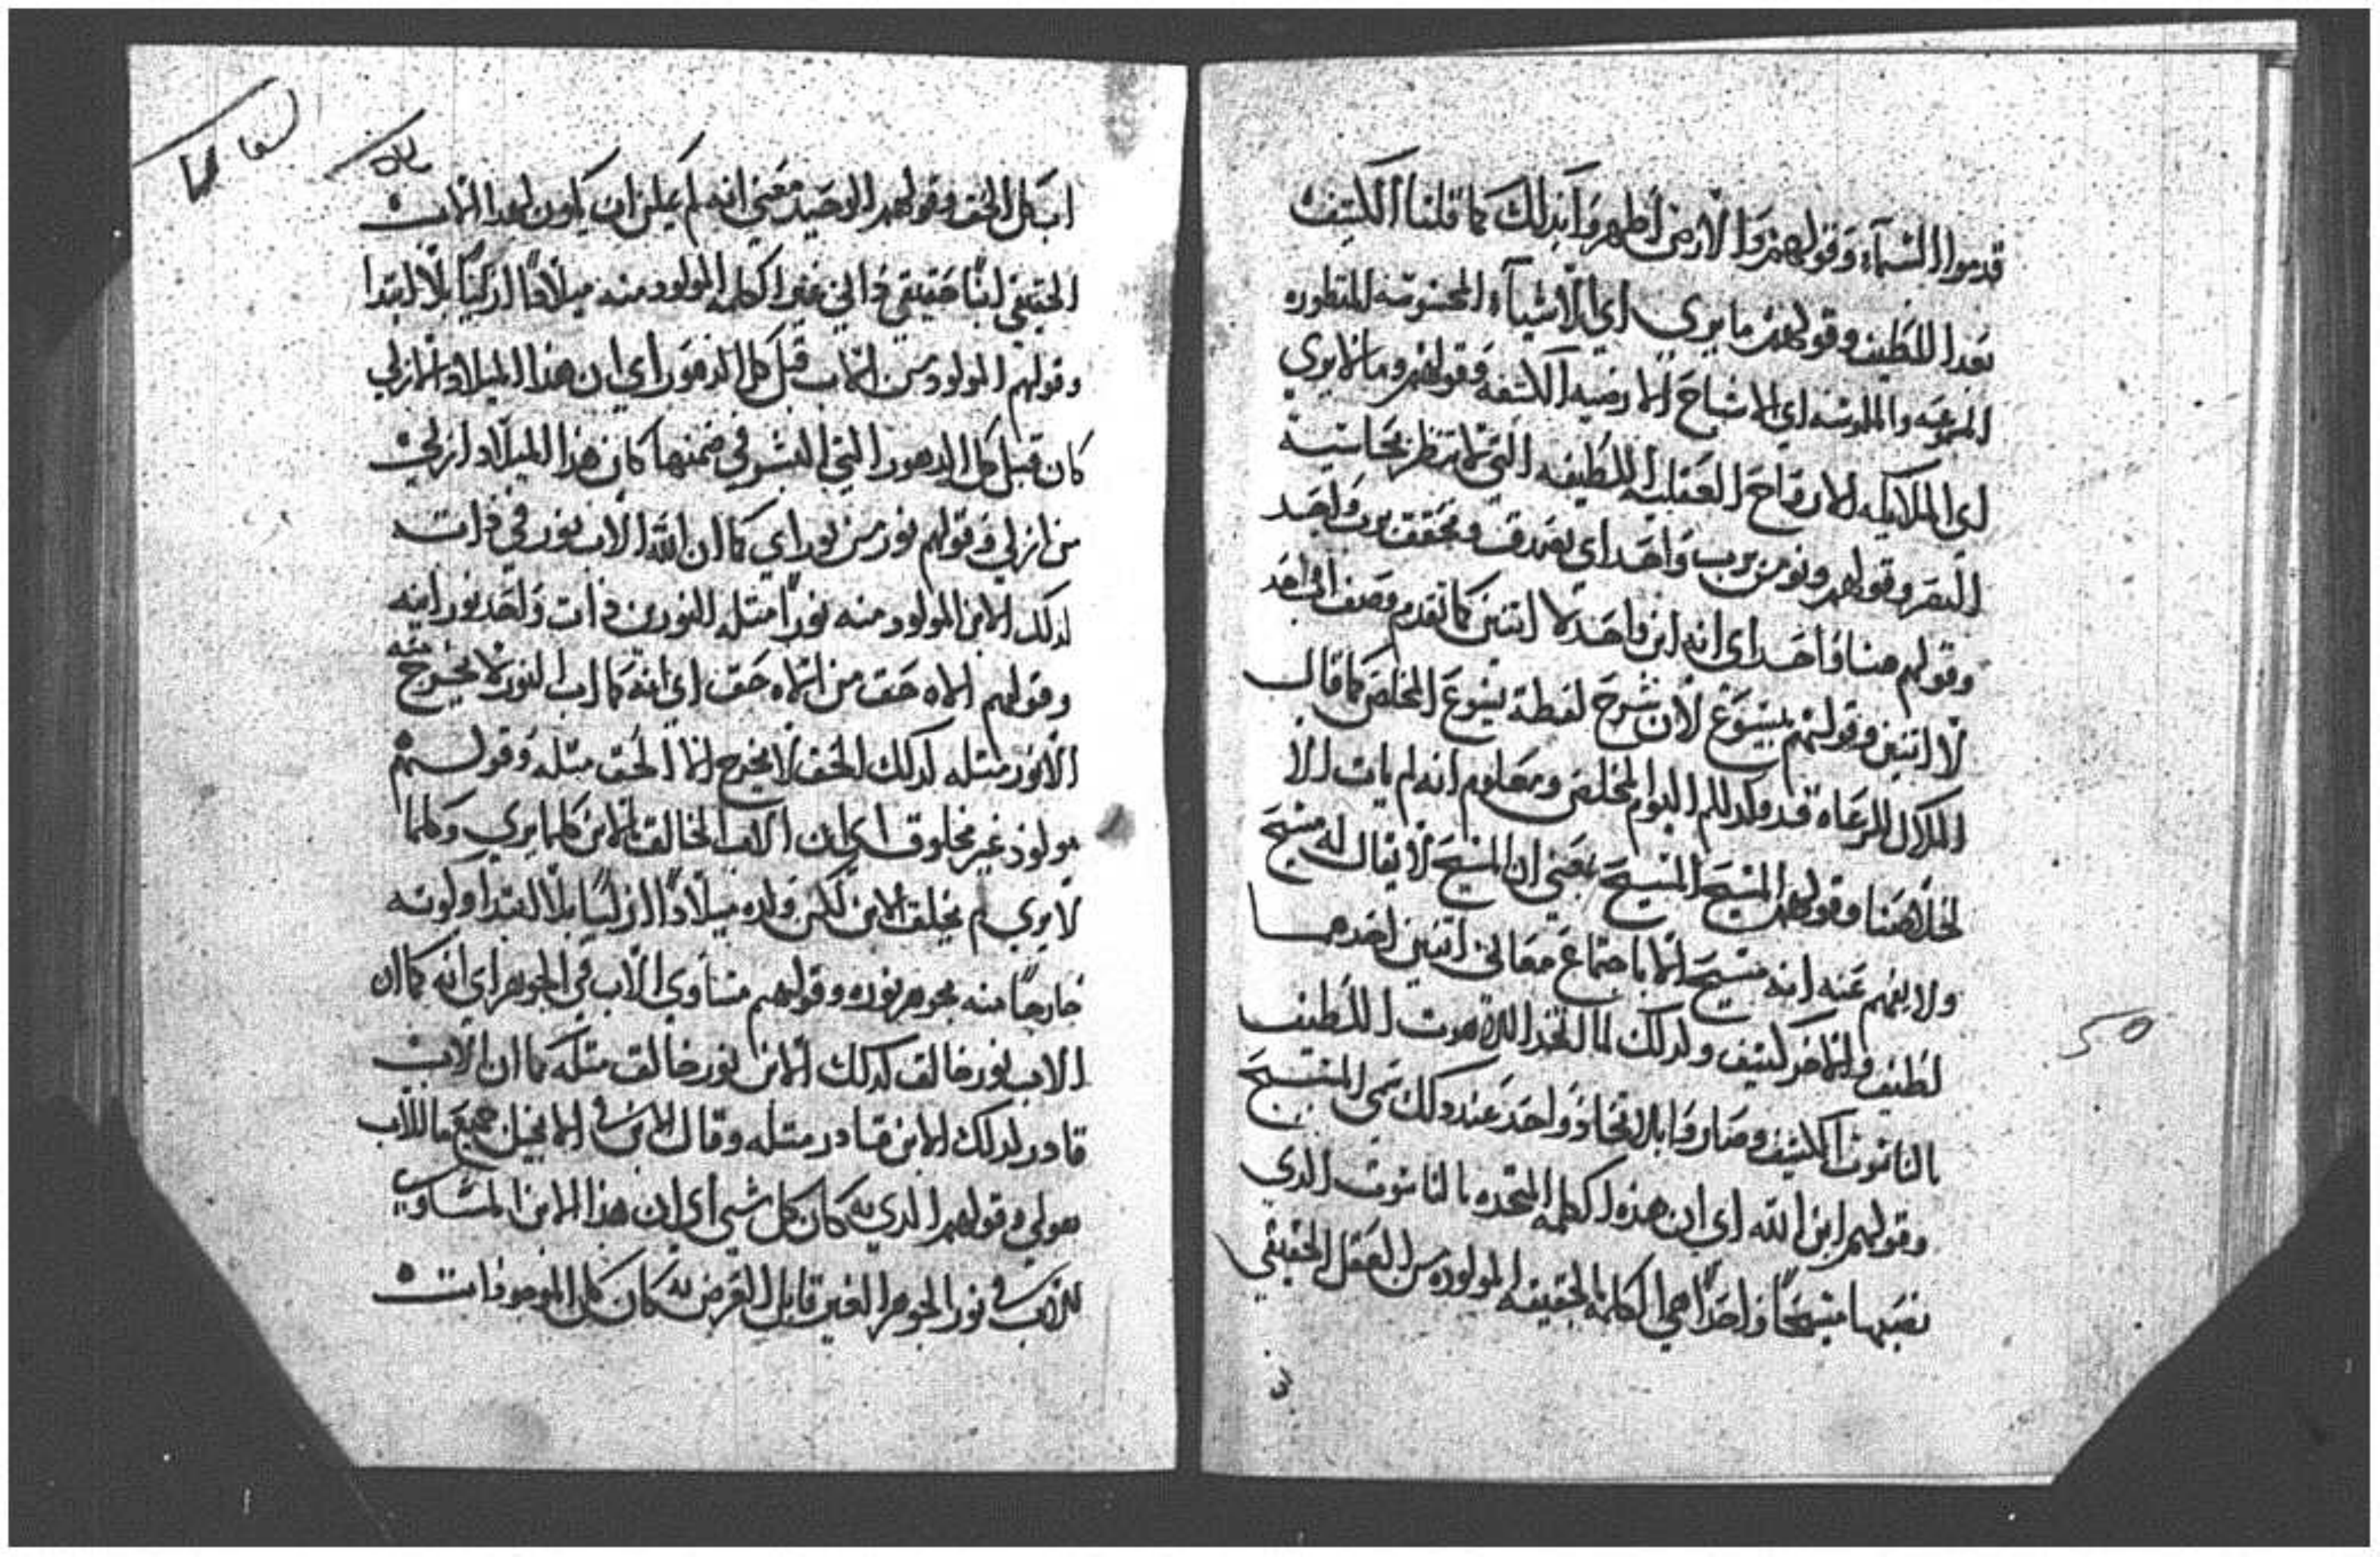 قدموا السماء وقولهم والارض اظهروا بذلك كما قلنا الكثيف
بعد اللطيف وقولهم ما يرى اي الاشياء المحسوسه المنظوره
والملموسه اي الاشباح الارضيه الكثفه وقولهم وما لا يري
اي الملايكه الارواح العقليه اللطيفه التي لا تنظر بحاسية
البصر وقولهم ونومن برب واحد اي نصدق ونحقق برب واحد
وقولهم هنا واحد اي انه ابن واحد لا اتنين كما تقدم وصف الواحد
لا اتنين وقولهم يسوع لان شرح لفظة يسوع المخلص كما قال
الملاك للرعاه قد ولد لكم اليوم المخلص ومعلوم انه لم يات الا
لخلاصنا وقولهم المسيح المسيح بمعني ان المسيح لا يقال له مسيح
ولا يفهم عنه انه مسيح الا باجتماع معاني اتنين احدهما
لطيف والاخر كتيف ولذلك لما اتحد اللاهوت اللطيف
بالناسوت الكتيف وصاروا بالاتحاد واحد عند دلك سمي المسيح
وقولهم ابن الله اي ان هذه الكلمه المتحده بالناسوت الدي
نصبها مسيحًا واحدًا هي الكلمة الحقيقه المولوده من العقل الحقيقي
50
اب كل الحق وقولهم الوحيد معني انه لم يمكن ان يكون لهدا الاب
الحقيقي ابنًا حقيقي داتي غير الكلمه المولود منه ميلادًا ازليًا بلا ابتدا
وقولهم المولود من الاب قبل كل الدهور اي ان هذا الميلاد الازلي
كان قبل كل الدهور التي البشر في ضمنها كان هذا الميلاد ازلي
من ازلي وقولهم نور من نور اي كما ان الله الاب نور في دات
لدلك الابن المولود منه نورًا متله النورين دات واحد نورانيه
وقولهم الاه حق من الاه حق اي انه كما ان النور لا يخرج منه
الا نور متله لدلك الحق لا يخرج الا الحق متله وقولهم
مولود غير مخلوق اي ان الاب الخالق بالابن كلما يري وكلما
لا يري لم يخلق الابن لكن ولده ميلادًا ازليًا بلا ابتدا ولونه
خارجًا منه بجوهر نوره وقولهم مساوي الاب في الجوهر اي انه كما ان
الاب نور خالق كدلك الابن نور خالق متله كما ان الاب
قادر لدلك الابن قادر متله وقال الابن في الانجيل جميع ما للاب
هو لي وقولهم الدي به كان كل شي اي ان هذا الابن المساوي
للاب في نور الجوهر الغير قابل العرض به كان كل الموجودات